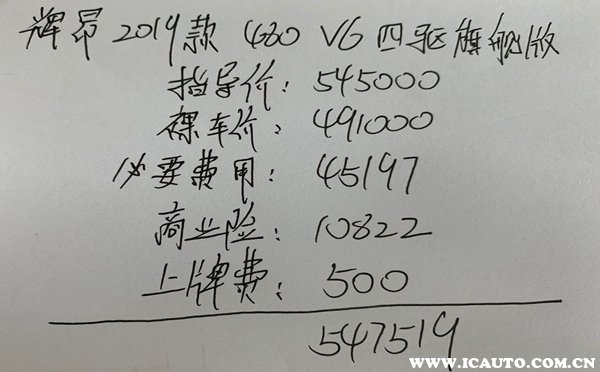 辉昂 2019款 480 V6 四驱旗舰版
指导价：545000
裸车价：491000
必要费用：45197
商业险：10822
上牌费：500
547519
WWW.ICAUTO.COM.CN